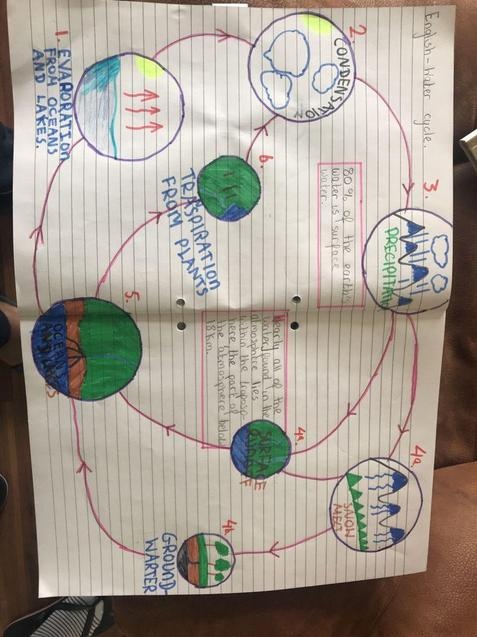 English-Water cycle.
1.
EVAPORATION
FROM OCEANS
AND LAKES.
2.
CONDENSATION
3.
PRECIPITATI
80% of the earths
water is surface
water.
6.
TRASPIRATION
FROM PLANTS
Nearly all of the
water found in the
atmosphere lies
within the troposp-
here the part of
the atmosphere below
18km.
4a.
SNOW
MELT
4a.
SURFACE
4b
GROUND-
WARTER
5.
OCEANS
AND LAKES